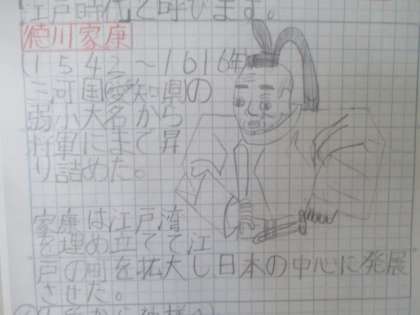 江戸時代と呼びます。
徳川家康
(1542～1616年)
三河国愛知県の
弱小大名から
将軍にまで昇
り詰めた。
家康は江戸湾
を埋め立てて江
戸の町を拡大し日本の中心に発展
させた。